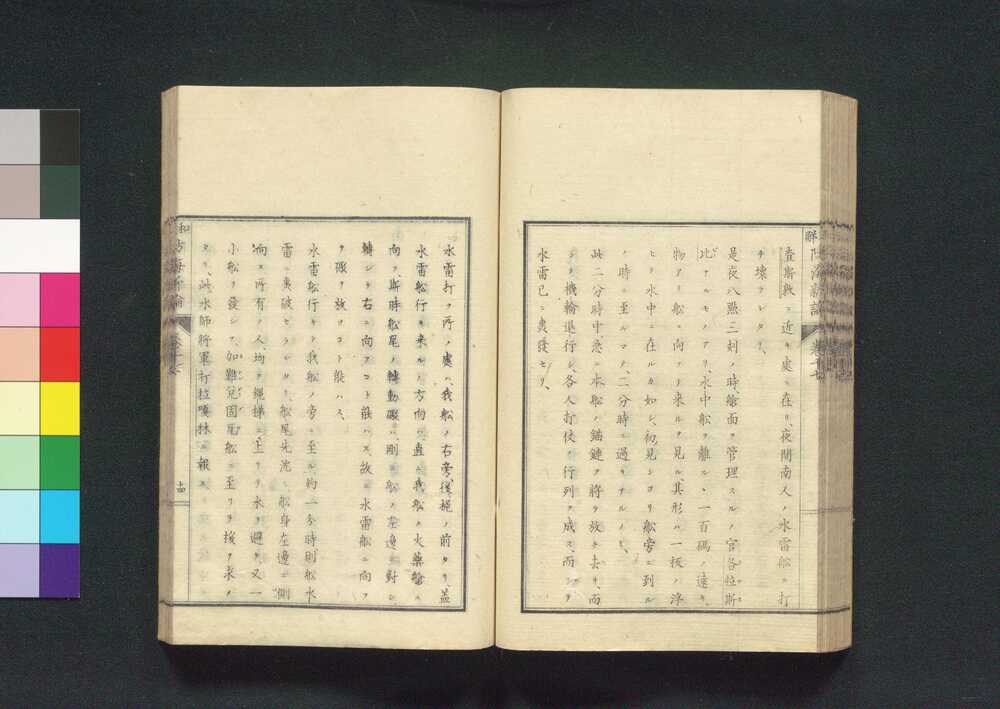 査斯敦ニ近キ處ニ在リ、夜間南人ノ水雷船ニ打
チ壊ラレタリ、
是夜八點三刻ノ時艙面ヲ管理スルノ官各拉斯
比ナルモノアリ、水中船ヲ離ルヽ一百碼ノ遠キ、
物アリ船ニ向テヨリ来ルヲ見ル、其形ハ一板ノ浮
ヒテ水中ニ在ルカ如シ、初見シヨリ船旁ニ到ル
ノ時ニ至ルマテ、二分時ニ過キサルノミ、
此二分時中、急ニ本船ノ錨鏈ヲ將テ放チ去リ、而
シテ機輪退行シ、各人打仗ノ行列ヲ成ス、而シテ
水雷已ニ轟發セリ、
水雷打ツ所ノ處ハ、我船ノ右旁後桅ノ前ナリ、蓋
水雷船行キ来ルノ方向ハ、直ニ我船ノ火藥艙ニ
向フ、斯時船尾ノ轉動礮ハ、剛ニ船ノ左邊ニ對シ、
轉シテ右ニ向フコト能ハス、故ニ水雷船ニ向フ
テ礮ヲ放ツコト能ハス、
水雷船行キテ我船ノ旁ニ至ル、約一分時則船水
雷ニ轟破セラレタリ、船尾先沈ミ、船身左邊ニ側
向ス、所有ノ人、均ク繩梯ニ上リテ水ヲ避ケ、又一
小船ヲ發シテ、加難兌固尾船ニ至リテ援ヲ求メ
タリ、此水師將軍打拉嘎林ニ報ス、
十四